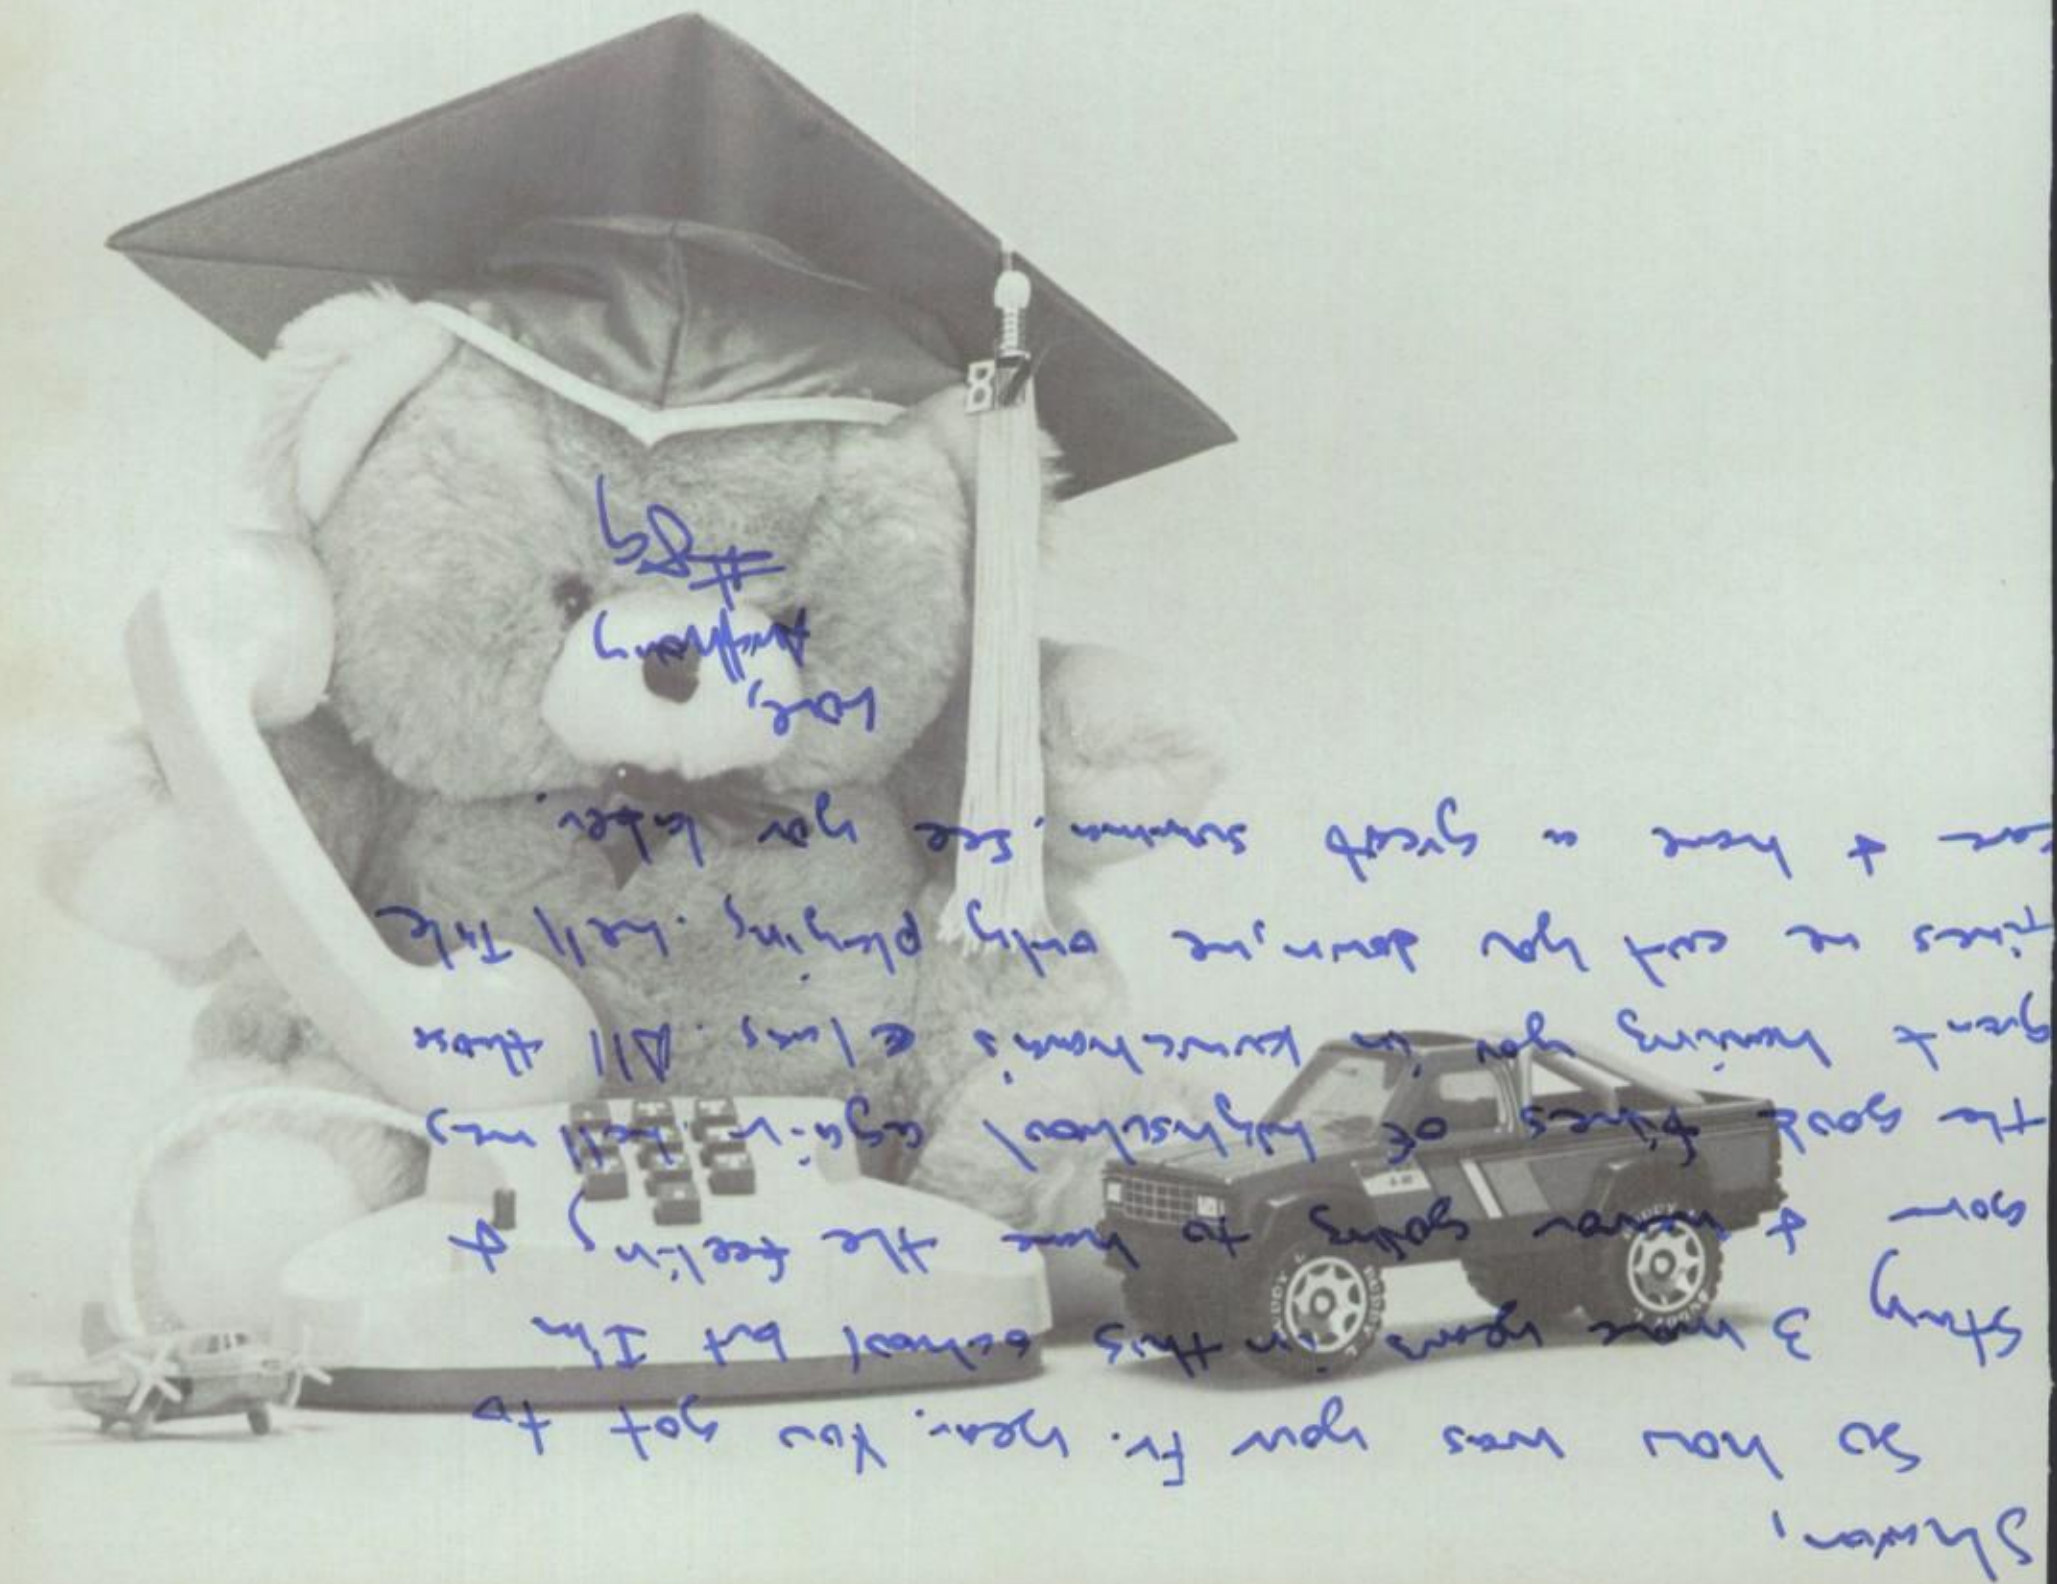 Sharon,
So how was your Fr. year. You got to
stay 3 more years in this school but I'm
gone & never going to have the feeling &
the good times of highschool again. Well it was
great having you in class. All those
times we cut you down, we only playing. Well Take
care & have a great summer. See you later.
Love,
Anthony
#89
87